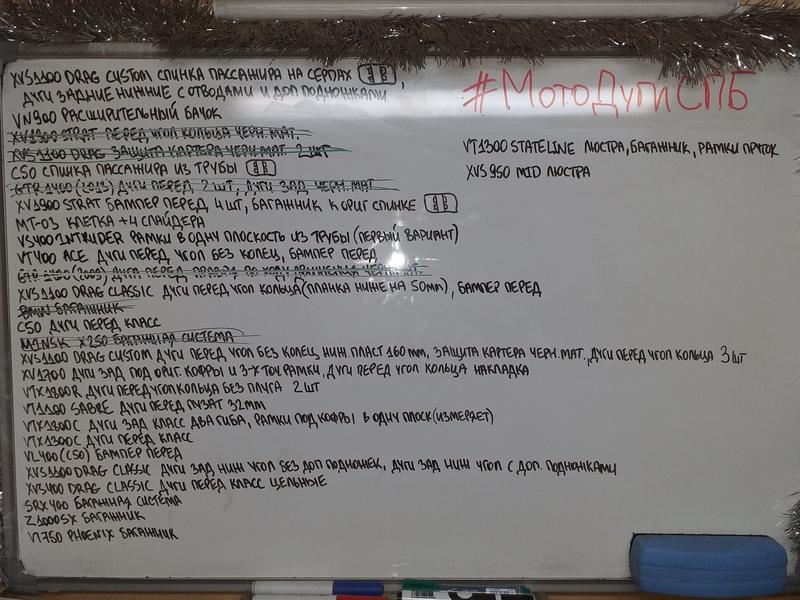 XVS1100 DRAG CUSTOM СПИНКА ПАССАЖИРА НА СЕРГАХ,
ДУГИ ЗАДНИЕ НИЖНИЕ С ОТВОДАМИ И ДОП ПОДНОЖКАМИ
VN900 РАСШИРИТЕЛЬНЫЙ БАЧОК
XV1900 STRAT ПЕРЕД УГОЛ КОЛЬЦА ЧЕРН.МАТ.
XVS1100 DRAG ЗАЩИТА КАРТЕРА ЧЕРН.МАТ. 2 ШТ
C50 СПИНКА ПАССАЖИРА ИЗ ТРУБЫ
GTR1400 (2013) ДУГИ ПЕРЕД, 2 ШТ, ДУГИ ЗАД ЧЕРН.МАТ
XV1900 STRAT БАМПЕР ПЕРЕД 4 ШТ, БАГАЖНИК К ОРИГ СПИНКЕ
MT-03 КЛЕТКА +4 СЛАЙДЕРА
VS400 INTRUDER РАМКИ В ОДНУ ПЛОСКОСТЬ ИЗ ТРУБЫ (ПЕРВЫЙ ВАРИАНТ)
VT400 ACE ДУГИ ПЕРЕД УГОЛ БЕЗ КОЛЕЦ, БАМПЕР ПЕРЕД
ДУГА ПЕРЕД ПО ХОДУ ДВИЖЕНИЯ ЧЕРН.МАТ.
XVS1100 DRAG CLASSIC ДУГИ ПЕРЕД УГОЛ КОЛЬЦА (ПЛАНКА НИЖЕ НА 50ММ), БАМПЕР ПЕРЕД
BMW БАГАЖНИК
C50 ДУГИ ПЕРЕД КЛАСС
MINSK X250 БАГАЖНАЯ СИСТЕМА
XVS1100 DRAG CUSTOM ДУГИ ПЕРЕД УГОЛ БЕЗ КОЛЕЦ НИЖ ПЛАСТ 160 ММ, ЗАЩИТА КАРТЕРА ЧЕРН.МАТ., ДУГИ ПЕРЕД УГОЛ КОЛЬЦА 3 ШТ
XV1700 ДУГИ ЗАД ПОД ОРИГ. КОФРЫ И 3-Х ТОЧ РАМКИ, ДУГИ ПЕРЕД УГОЛ КОЛЬЦА НАКЛАДКА
VTX1800R ДУГИ ПЕРЕД УГОЛ КОЛЬЦА БЕЗ ПЛУГА 2 ШТ
VT1100 SABRE ДУГИ ПЕРЕД ПУЗАТ 32ММ
VTX1800C ДУГИ ЗАД КЛАСС ДВА ГИБА, РАМКИ ПОД КОФРЫ В ОДНУ ПЛОСК (ИЗМЕРЯЕТ)
VTX1300C ДУГИ ПЕРЕД КЛАСС
VL400 (C50) БАМПЕР ПЕРЕД
XVS1100 DRAG CLASSIC ДУГИ ЗАД НИЖ УГОЛ БЕЗ ДОП ПОДНОЖЕК, ДУГИ ЗАД НИЖ УГОЛ С ДОП. ПОДНОЖКАМИ
XVS400 DRAG CLASSIC ДУГИ ПЕРЕД КЛАСС ЦЕЛЬНЫЕ
SRX400 БАГАЖНАЯ СИСТЕМА
Z1000SX БАГАЖНИК
VT750 PHOENIX БАГАЖНИК
#МотоДугиСПБ
VT1300 STATELINE ЛЮСТРА, БАГАЖНИК, РАМКИ ПРУТОК
XVS950 MID ЛЮСТРА